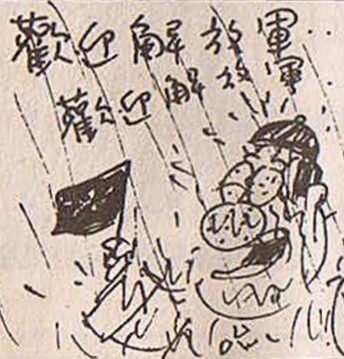 歡迎解放軍
歡迎解放軍